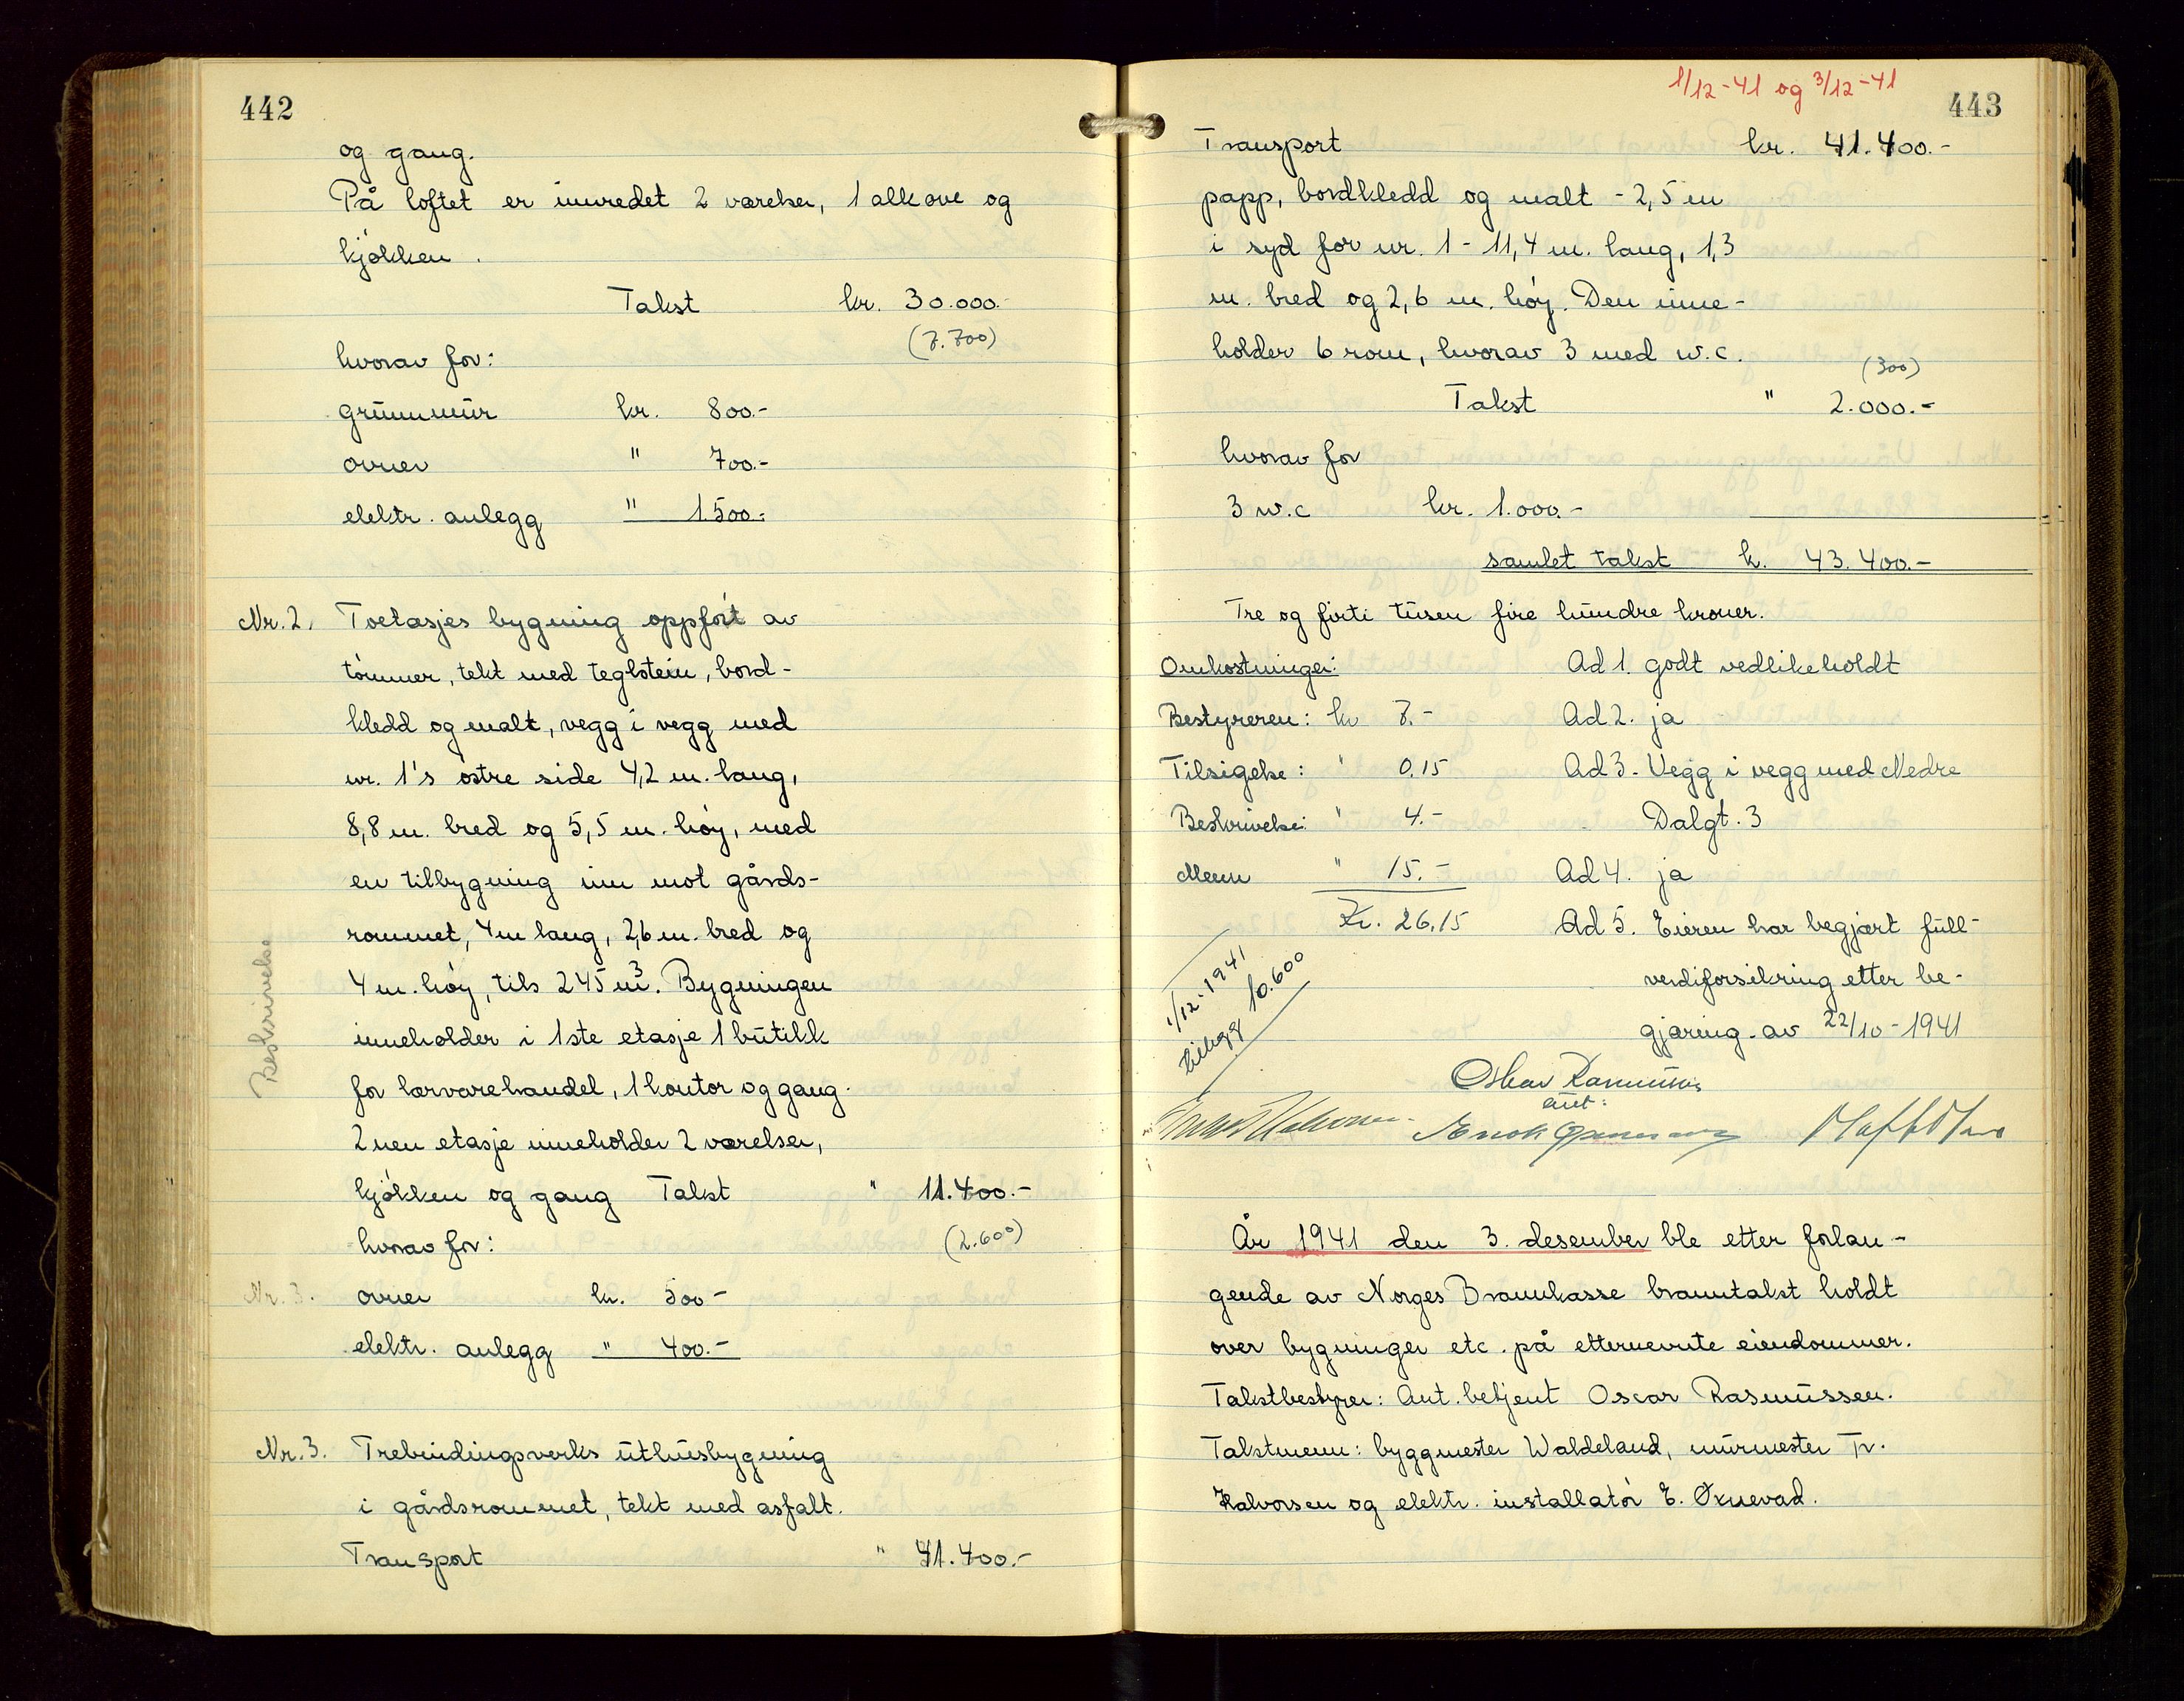 442
og gang.
På loftet er innredet 2 værelser, 1 alkove og
kjøkken.
Takst kr. 30.000.-
(7.700)
hvorav for:
grunnmur kr. 800.-
ovner " 700.-
elektr. anlegg " 1.500.-
Nr. 2. Toetasjes bygning oppført av
tømmer, tekt med teglstein, bord-
kledd og malt, vegg i vegg med
nr. 1's østre side 4,2 m. lang,
8,8 m. bred og 5,5 m. høy, med
en tilbygning inn mot gårds-
rommet, 4 m lang, 2,6 m. bred og
4 m. høy, tils 245 m³. Bygningen
inneholder i 1ste etasje 1 butikk
for lærvarehandel, 1 kontor og gang.
2nen etasje inneholder 2 værelser,
kjøkken og gang Takst " 11.400.-
hvorav for: (2.600)
Nr. 3. ovner kr. 500-
elektr. anlegg " 400.-
Beskrivelse
Nr. 3. Trebindingsverks uthusbygning
i gårdsrommet, tekt med asfalt.
Transport " 41.400.-
1/12-41 og 3/12-41
443
Transport kr. 41.400.-
papp, bordkledd og malt - 2,5 m
i syd for nr. 1 - 11,4 m. lang, 1,3
m. bred og 2,6 m. høy. Den inne-
holder 6 rom, hvorav 3 med w.c.
(300)
Takst " 2.000.-
hvorav for
3 w.c kr. 1.000.-
samlet takst k. 43.400.-
Tre og firti tusen fire hundre kroner.
Omkostninger: Ad 1. godt vedlikeholdt
Bestyreren: kr 7.- Ad 2. ja
Tilsigelse: " 0,15 Ad 3. Vegg i vegg med Nedre
Beskrivelse: " 4.- Dalgt. 3
Menn " 15.- Ad 4. ja
Kr. 26,15 Ad 5. Eieren har begjært full-
verdiforsikring etter be-
gjæring av 22/10-1941
1/12-1941
tillegg 10.600
Oskar Rasmussen
aut:
År 1941 den 3. desember ble etter forlan-
gende av Norges Brannkasse branntakst holdt
over bygninger etc. på etternevnte eiendommer.
Takstbestyrer: Aut. betjent Oscar Rasmussen.
Takstmenn: byggmester Waldeland, murmester Tr.
Halvorsen og elektr. installatør E. Øxnevad.